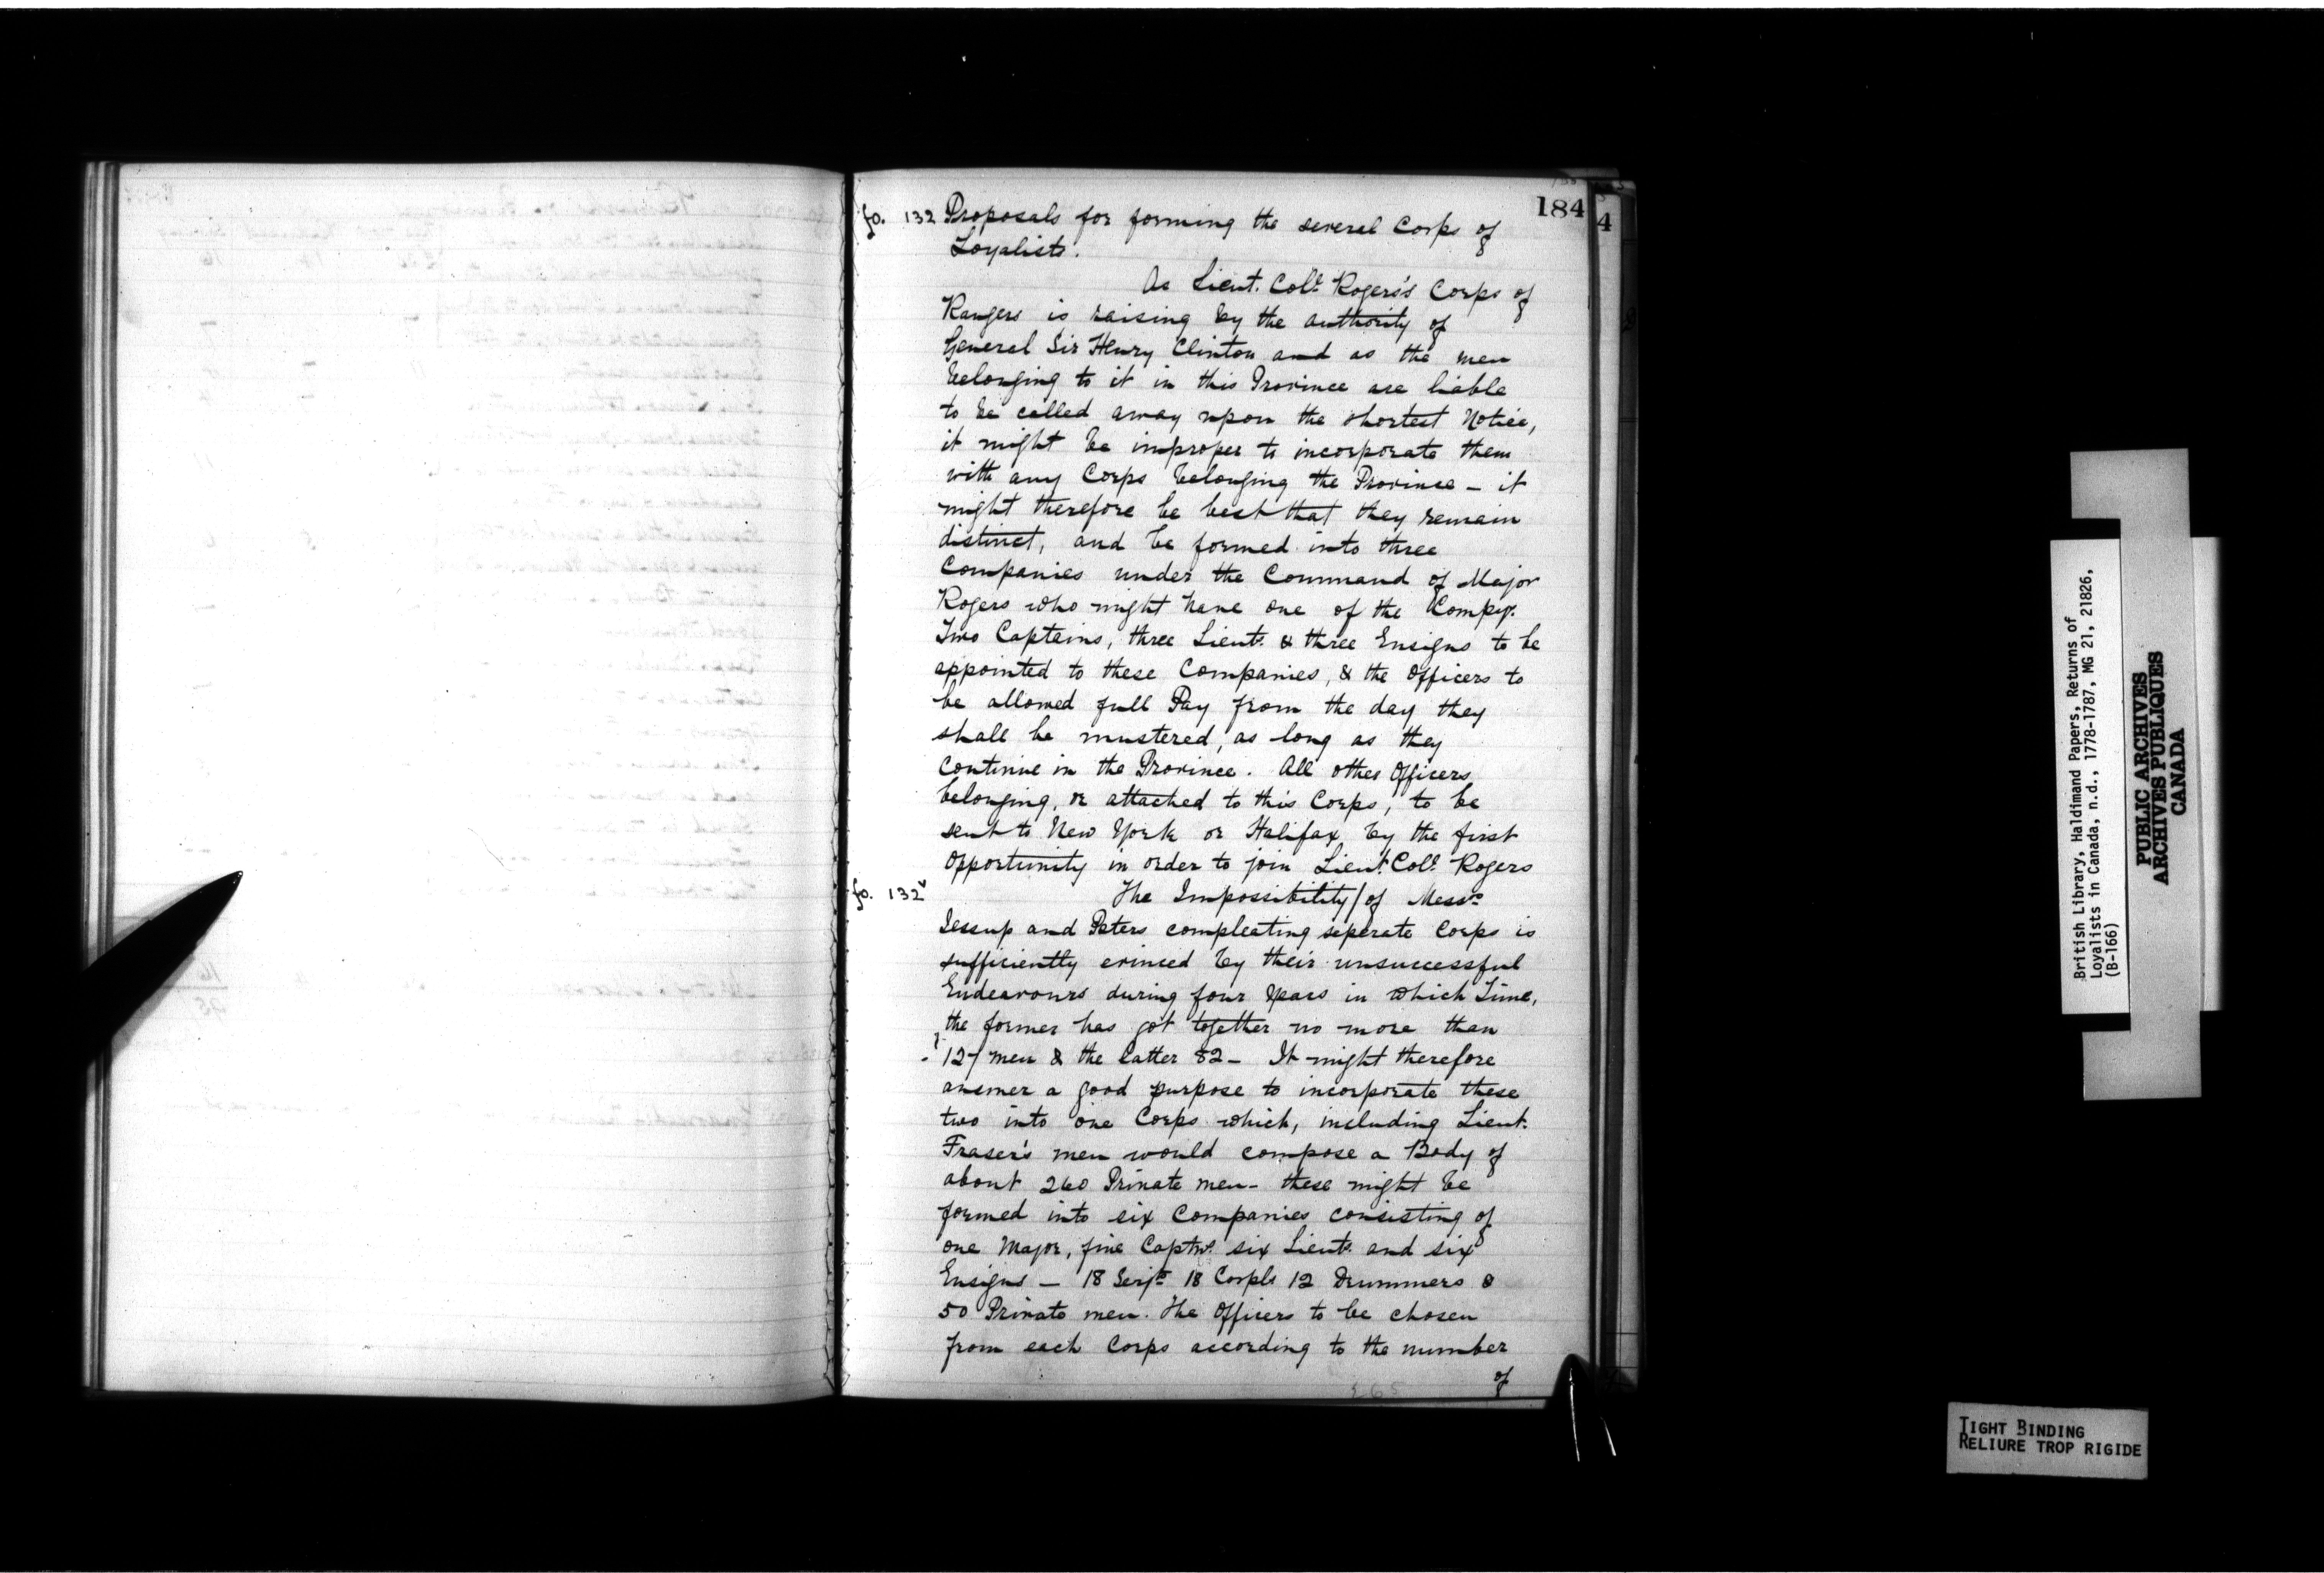 184
4
fo. 132 Proposals for forming the several Corps of
Loyalists.
As Lieut. Coll. Rogers's Corps of
Rangers is raising by the authority of
General Sir Henry Clinton and as the men
belonging to it in this Province are liable
to be called away upon the shortest Notice,
it might be improper to incorporate them
with any Corps belonging the Province - it
might therefore be best that they remain
distinct, and be formed into three
Companies under the Command of Major
Rogers who might have one of the Compys.
Two Captains, three Lieuts. & three Ensigns to be
appointed to these Companies, & the Officers to
be allowed full Pay from the day they
shall be mustered, as long as they
continue in the Province. All other Officers
belonging, or attached to this Corps, to be
sent to New York or Halifax by the first
Opportunity in order to join Lieut. Coll. Rogers
fo. 132v The Impossibility/of Messrs.
Jessup and Peters compleating seperate Corps is
sufficiently evinced by their unsuccessful
Endeavours during four Years in which Time,
the former has got together no more than
127 men & the latter 82 - It might therefore
answer a good purpose to incorporate these
two into one Corps which, including Lieut.
Fraser's men would compose a Body of
about 260 Private men - these might be
formed into six Companies consisting of
one Major, five Captns. six Lieuts. and six
Ensigns - 18 Serjts. 18 Corpls 12 Drummers &
50 Private men. The Officers to be chosen
from each Corps according to the number
of
British Library, Haldimand Papers, Returns of
Loyalists in Canada, n.d., 1778-1787, MG 21, 21826,
(B-166)
PUBLIC ARCHIVES
ARCHIVES PUBLIQUES
CANADA
TIGHT BINDING
RELIURE TROP RIGIDE